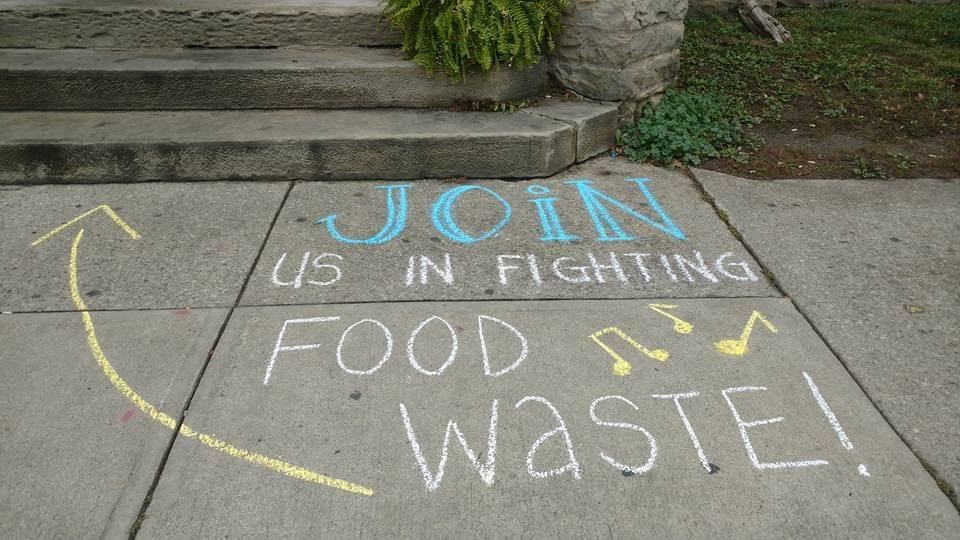 JOiN
US IN FIGHTING
FOOD
WaSTE!